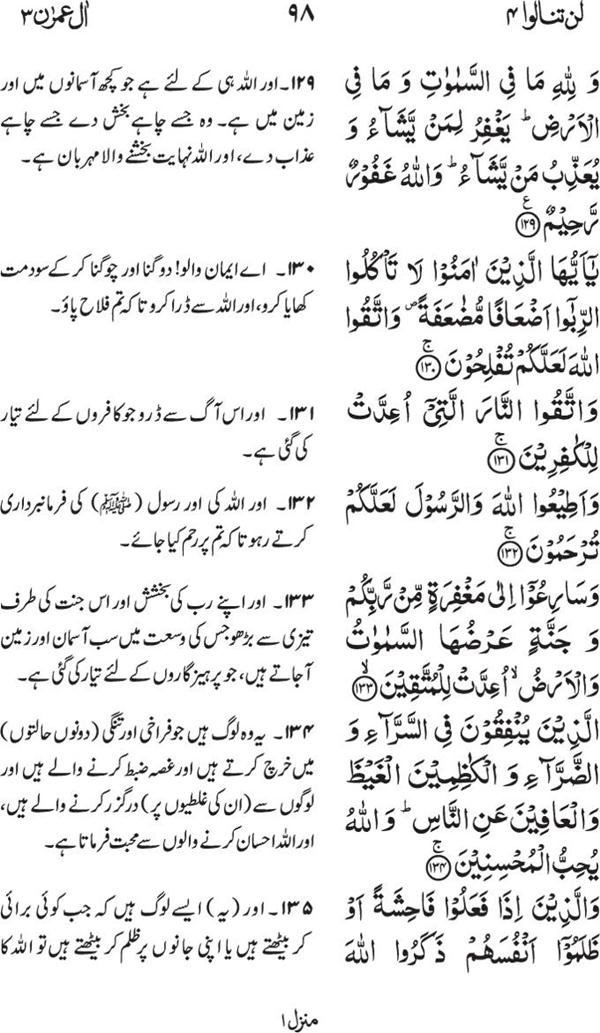 لن تنالوا ۴
۹۸
اٰل عمرٰن ۳
وَ لِلّٰهِ مَا فِی السَّمٰوٰتِ وَ مَا فِی
الْاَرْضِ ؕ یَغْفِرُ لِمَنْ یَّشَآءُ وَ
یُعَذِّبُ مَنْ یَّشَآءُ ؕ وَاللّٰهُ غَفُوْرٌ
رَّحِیْمٌ ﴿۱۲۹﴾ ع
۱۲۹۔ اور اللہ ہی کے لئے ہے جو کچھ آسمانوں میں اور
زمین میں ہے۔ وہ جسے چاہے بخش دے جسے چاہے
عذاب دے، اور اللہ نہایت بخشنے والا مہربان ہے۔
یٰۤاَیُّهَا الَّذِیْنَ اٰمَنُوْا لَا تَاْكُلُوا
الرِّبٰۤوا اَضْعَافًا مُّضٰعَفَةً ۪ وَّاتَّقُوا
اللّٰهَ لَعَلَّكُمْ تُفْلِحُوْنَ ﴿۱۳۰﴾ ۚ
۱۳۰۔ اے ایمان والو! دوگنا اور چوگنا کر کے سود مت
کھایا کرو، اور اللہ سے ڈرا کرو تاکہ تم فلاح پاؤ۔
وَاتَّقُوا النَّارَ الَّتِیْۤ اُعِدَّتْ
لِلْكٰفِرِیْنَ ﴿۱۳۱﴾ ۚ
۱۳۱۔ اور اس آگ سے ڈرو جو کافروں کے لئے تیار
کی گئی ہے۔
وَاَطِیْعُوا اللّٰهَ وَالرَّسُوْلَ لَعَلَّكُمْ
تُرْحَمُوْنَ ﴿۱۳۲﴾ ۚ
۱۳۲۔ اور اللہ کی اور رسول (ﷺ) کی فرمانبرداری
کرتے رہو تاکہ تم پر رحم کیا جائے۔
وَسَارِعُوْۤا اِلٰی مَغْفِرَةٍ مِّنْ رَّبِّكُمْ
وَ جَنَّةٍ عَرْضُهَا السَّمٰوٰتُ
وَالْاَرْضُ ۙ اُعِدَّتْ لِلْمُتَّقِیْنَ ﴿۱۳۳﴾ ۙ
۱۳۳۔ اور اپنے رب کی بخشش اور اس جنت کی طرف
تیزی سے بڑھو جس کی وسعت میں سب آسمان اور زمین
آجاتے ہیں، جو پرہیزگاروں کے لئے تیار کی گئی ہے۔
الَّذِیْنَ یُنْفِقُوْنَ فِی السَّرَّآءِ وَ
الضَّرَّآءِ وَ الْكٰظِمِیْنَ الْغَیْظَ
وَالْعَافِیْنَ عَنِ النَّاسِ ؕ وَ اللّٰهُ
یُحِبُّ الْمُحْسِنِیْنَ ﴿۱۳۴﴾ ۚ
۱۳۴۔ یہ وہ لوگ ہیں جو فراخی اور تنگی (دونوں حالتوں)
میں خرچ کرتے ہیں اور غصہ ضبط کرنے والے ہیں اور
لوگوں سے (ان کی غلطیوں پر) درگزر کرنے والے ہیں،
اور اللہ احسان کرنے والوں سے محبت فرماتا ہے۔
وَالَّذِیْنَ اِذَا فَعَلُوْا فَاحِشَةً اَوْ
ظَلَمُوْۤا اَنْفُسَهُمْ ذَكَرُوا اللّٰهَ
۱۳۵۔ اور (یہ) ایسے لوگ ہیں کہ جب کوئی برائی
کر بیٹھتے ہیں یا اپنی جانوں پر ظلم کر بیٹھتے ہیں تو اللہ کا
منزل ۱